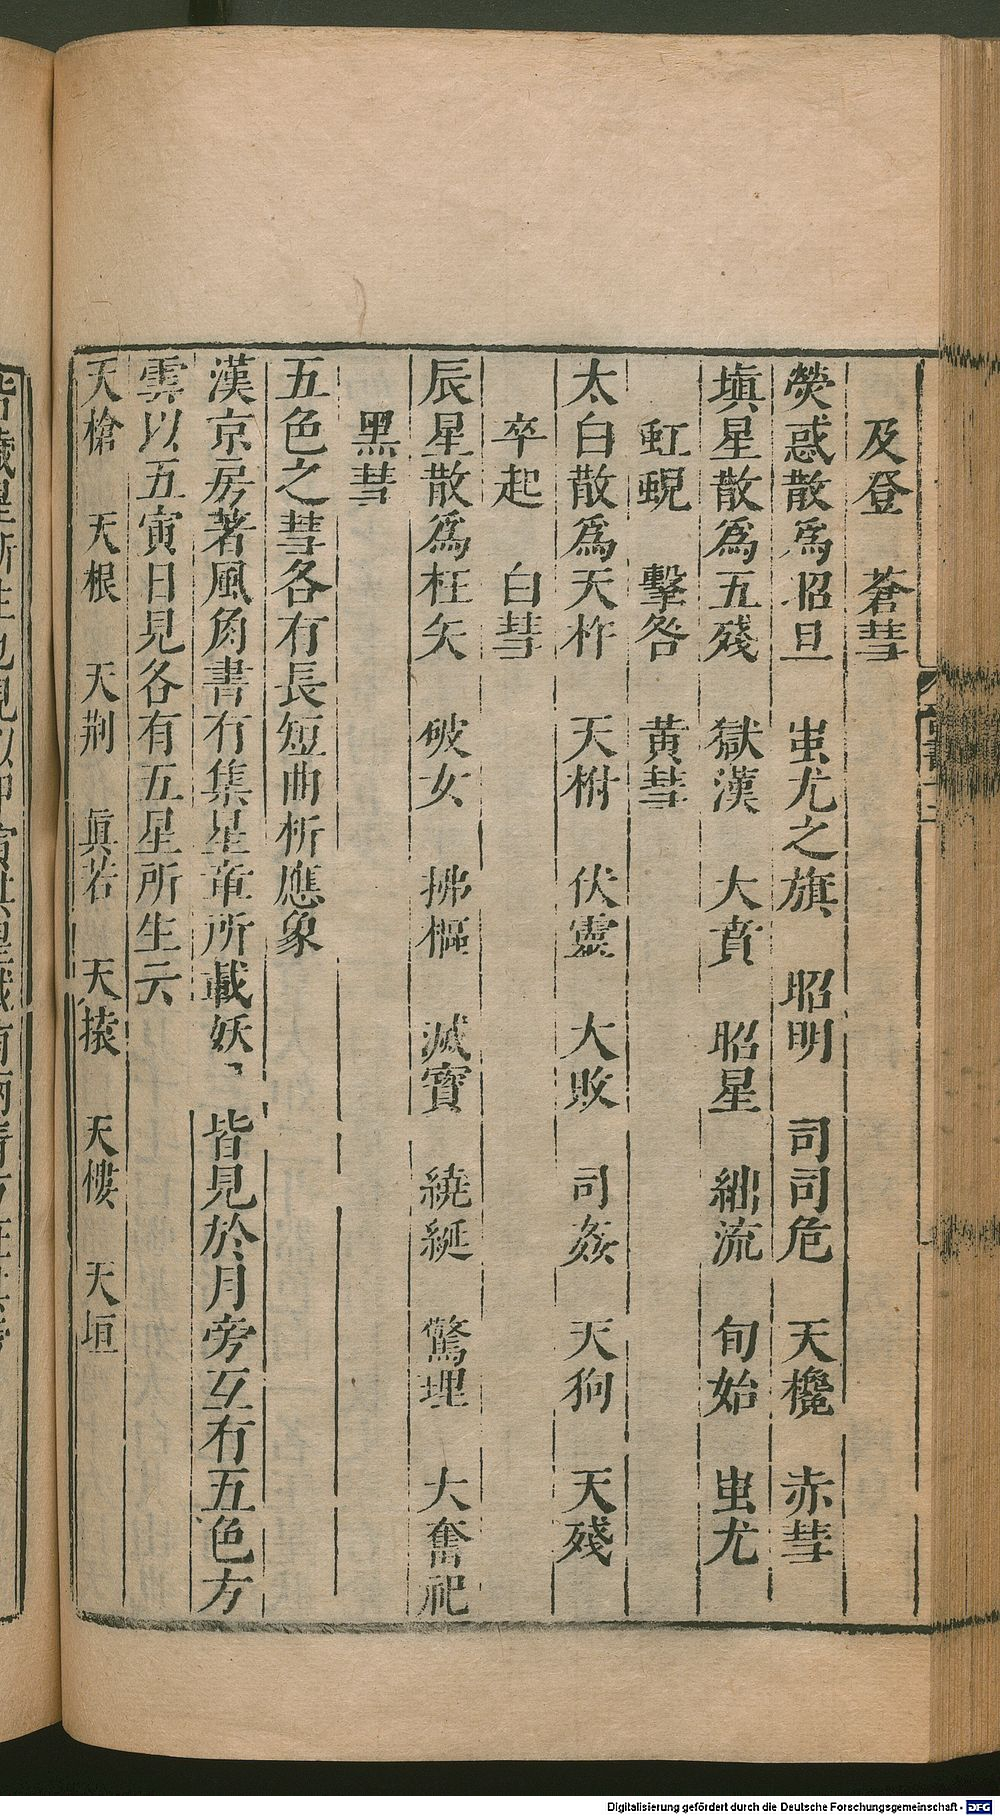 及登　蒼彗
熒惑散爲昭旦　蚩尤之旗　昭明　司司危　天欃　赤彗
塡星散爲五殘　獄漢　大賁　昭星　絀流　旬始　蚩尤
虹蜺　擊咎　黃彗
太白散爲天杵　天柎　伏靈　大敗　司姦　天狗　天殘
卒起　白彗
辰星散爲枉矢　破女　拂樞　滅寶　繞綖　驚理　大奮祀
黑彗
五色之彗各有長短曲析應象
漢京房著風角書有集星章所載妖　皆見於月旁互有五色方
雲以五寅日見各有五星所生云
天槍　天根　天荆　眞若　天榬　天樓　天垣
Digitalisierung gefördert durch die Deutsche Forschungsgemeinschaft - DFG